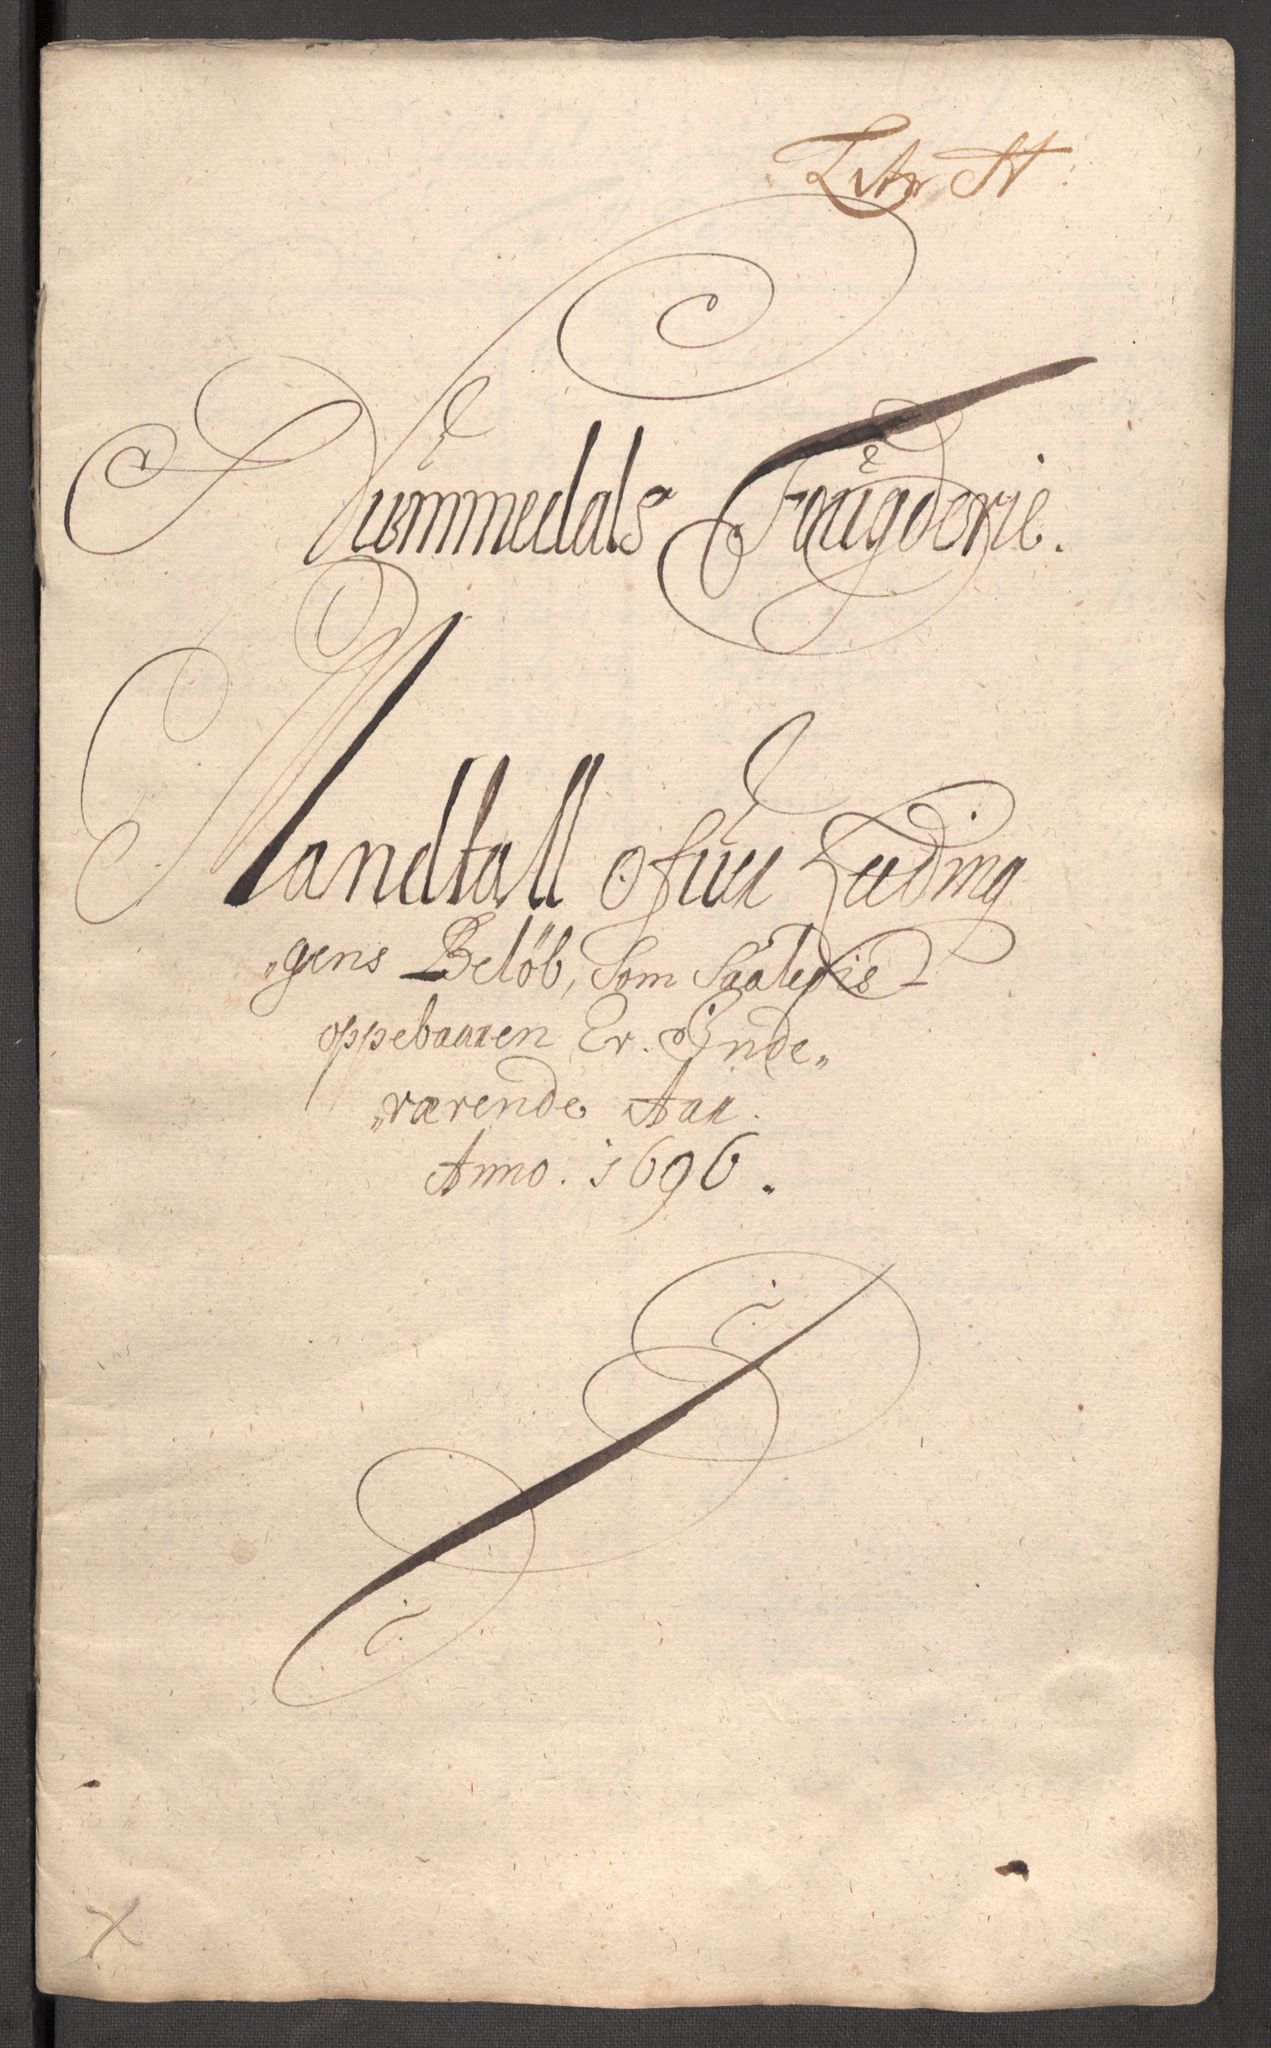 Litr A:
Nummedals Fougderie.
Mandtall ofuer Leding
„gens Beløb, Som Saaledis
oppebaaren Er. Inde„
„værende Aar.
Anno. 1696.